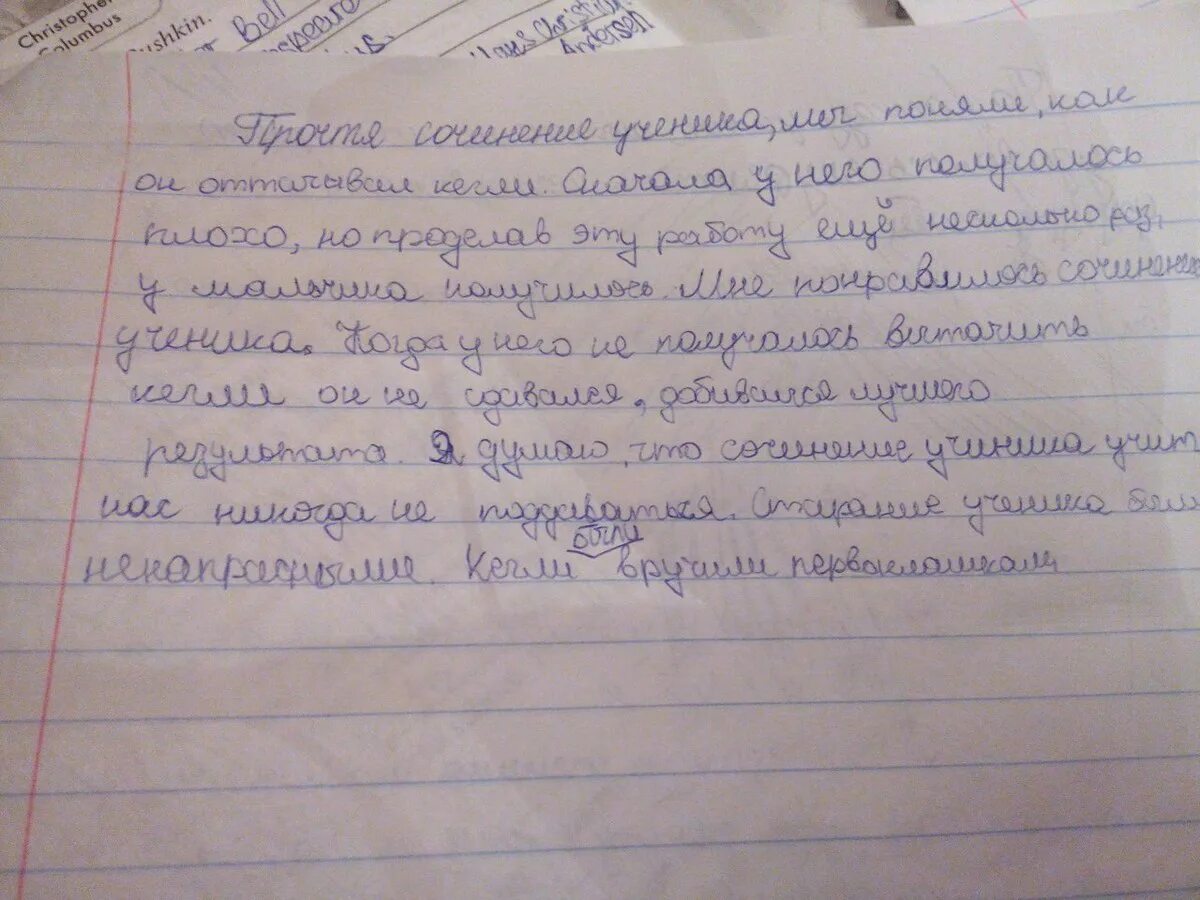 Christopher
Columbus
Pushkin.
Bell
Hans Christian
Andersen
Прочтя сочинение ученика, мы поняли, как
он оттачывал кегли. Сначала у него получалось
плохо, но проделав эту работу ещё несколько раз,
у мальчика получилось. Мне понравилось сочинение
ученика. Когда у него не получалось выточить
кегли он не сдавался, добивался лучшего
результата. Я думаю, что сочинение учиника учит
нас никогда не поддаваться. Старание ученика были
были
ненапрасными. Кегли вручили первоклашкам